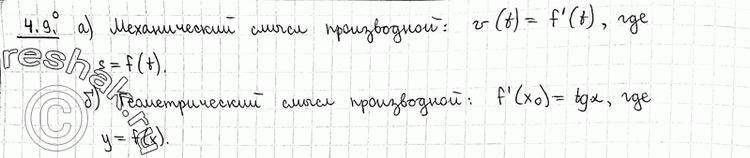 4.9.° а) Механический смысл производной: v(t) = f'(t), где
s = f(t).
б) Геометрический смысл производной: f'(x₀) = tgα, где
y = f(x).
reshak.ru
©